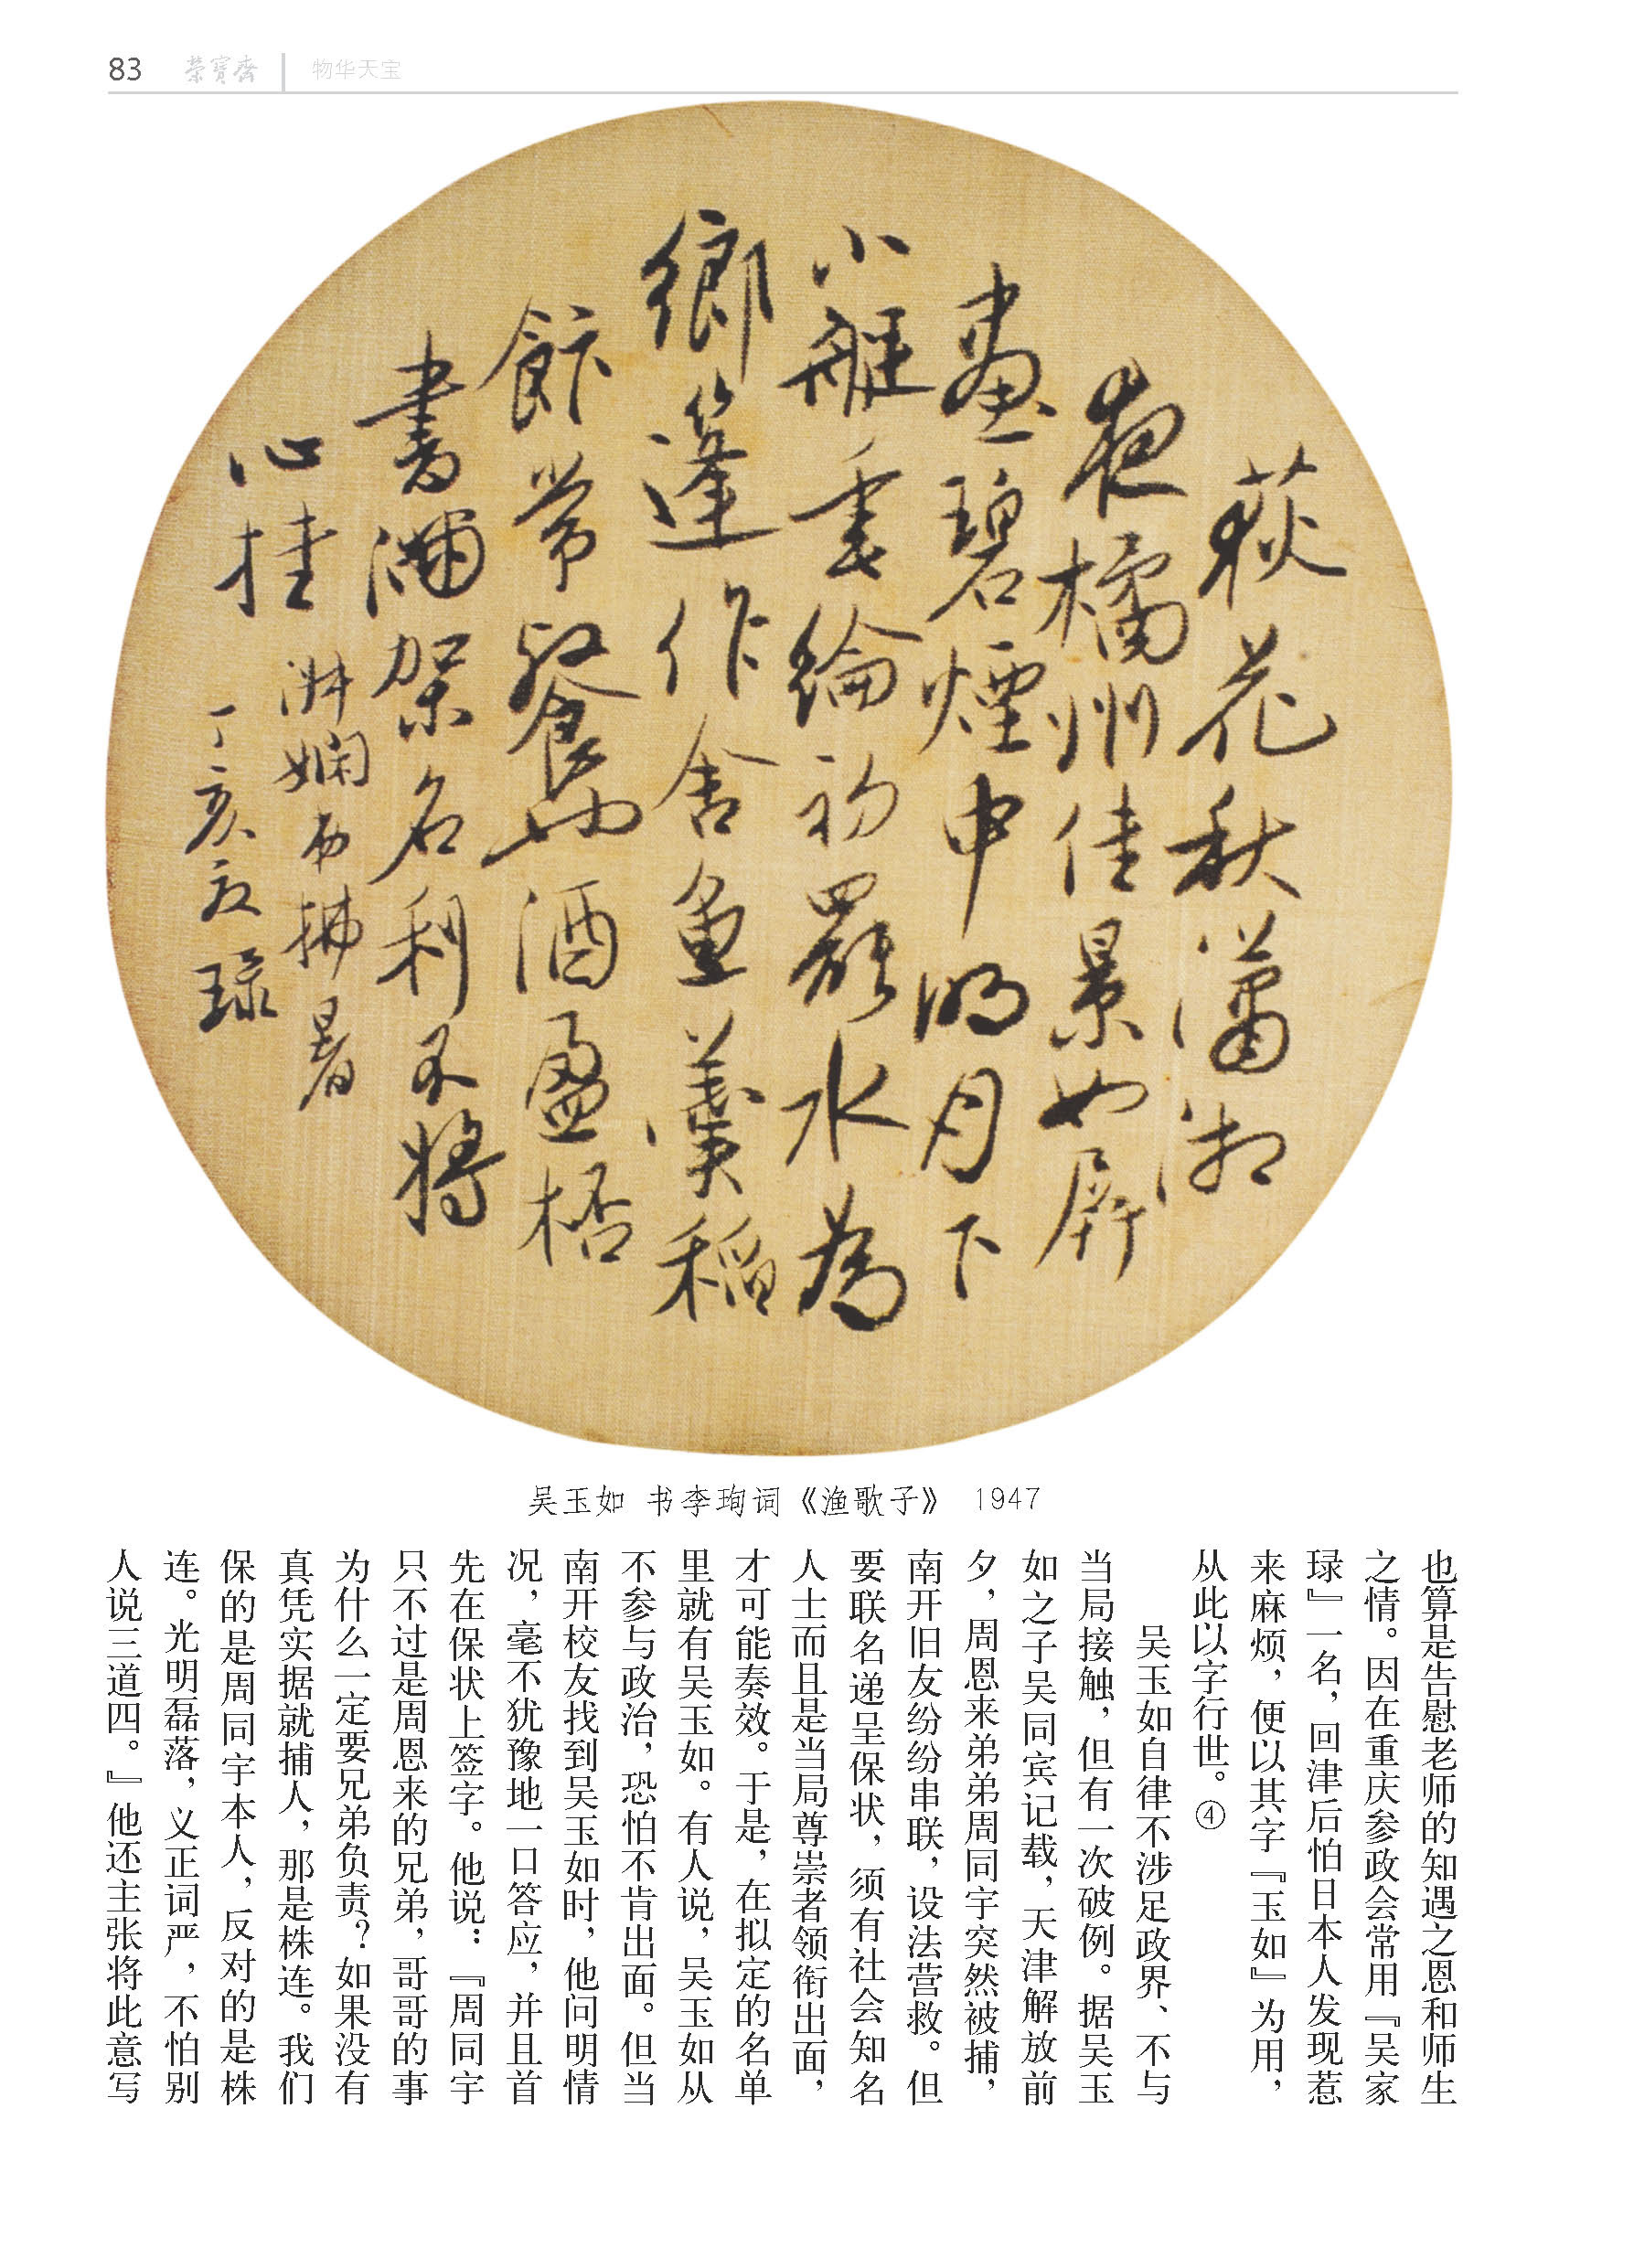 83 荣宝斋 物华天宝
荻花秋瀟湘
夜橘州佳景如屏
畫碧煙中明月下
小艇垂綸初罷水為
鄉篷作舍魚羹稻
飯常餐也酒盈桮
書滿架名利不將
心挂
淋嫻弟拂暑
丁亥夏琭
吴玉如 书李珣词《渔歌子》 1947
也算是告慰老师的知遇之恩和师生
之情。因在重庆参政会常用『吴家
琭』一名，回津后怕日本人发现惹
来麻烦，便以其字『玉如』为用，
从此以字行世。④
吴玉如自律不涉足政界、不与
当局接触，但有一次破例。据吴玉
如之子吴同宾记载，天津解放前
夕，周恩来弟弟周同宇突然被捕，
南开旧友纷纷串联，设法营救。但
要联名递呈保状，须有社会知名
人士而且是当局尊崇者领衔出面，
才可能奏效。于是，在拟定的名单
里就有吴玉如。有人说，吴玉如从
不参与政治，恐怕不肯出面。但当
南开校友找到吴玉如时，他问明情
况，毫不犹豫地一口答应，并且首
先在保状上签字。他说：『周同宇
只不过是周恩来的兄弟，哥哥的事
为什么一定要兄弟负责？如果没有
真凭实据就捕人，那是株连。我们
保的是周同宇本人，反对的是株
连。光明磊落，义正词严，不怕别
人说三道四。』他还主张将此意写